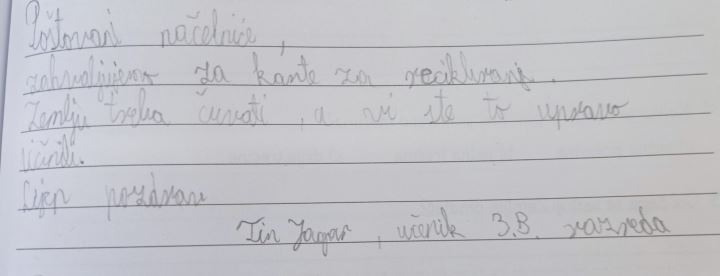 Poštovani načelniče,
zahvaljujemo za kante za recikliranj.
Zemlju treba čuvati, a vi ste to upravo
učinili.
Lijep pozdrav
Tin Jagar, učenik 3.B. razreda